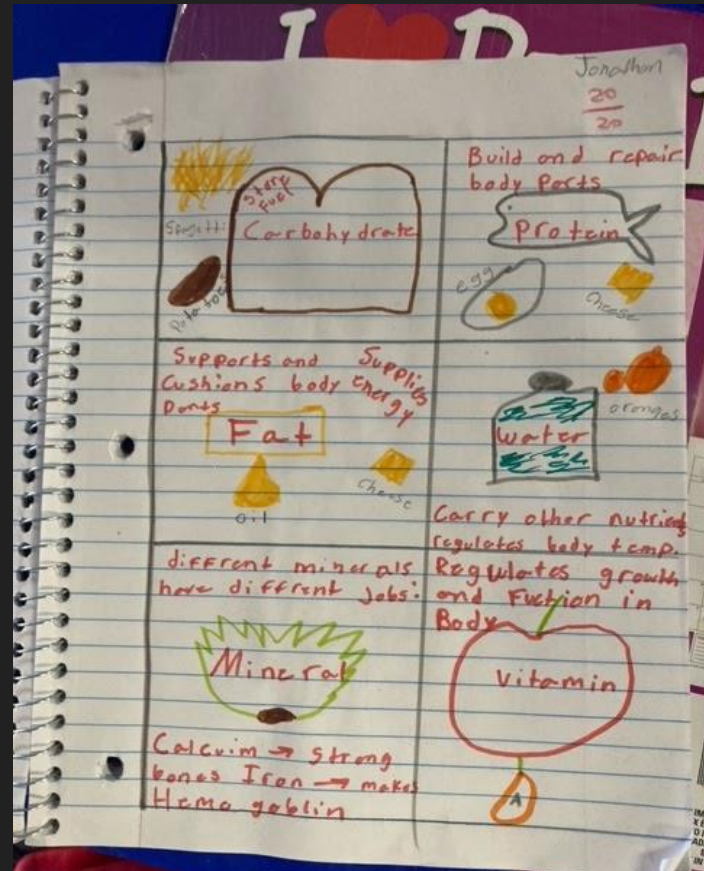 I
Jonathan
20
20
Store
Fuel
Carbohydrate
Spagatti
Potatoes
Build and repair
body Parts
Protein
egg
Cheese
Supports and
Cushions body
Parts
Supplies
Energy
Fat
oil
Cheese
water
oranges
Carry other nutrients
regulates body temp.
diffrent minerals
have diffrent Jobs:
Mineral
Calcuim → Strong
bones Iron → makes
Hemo goblin
Regulates growth
and Fuction in
Body
Vitamin
A